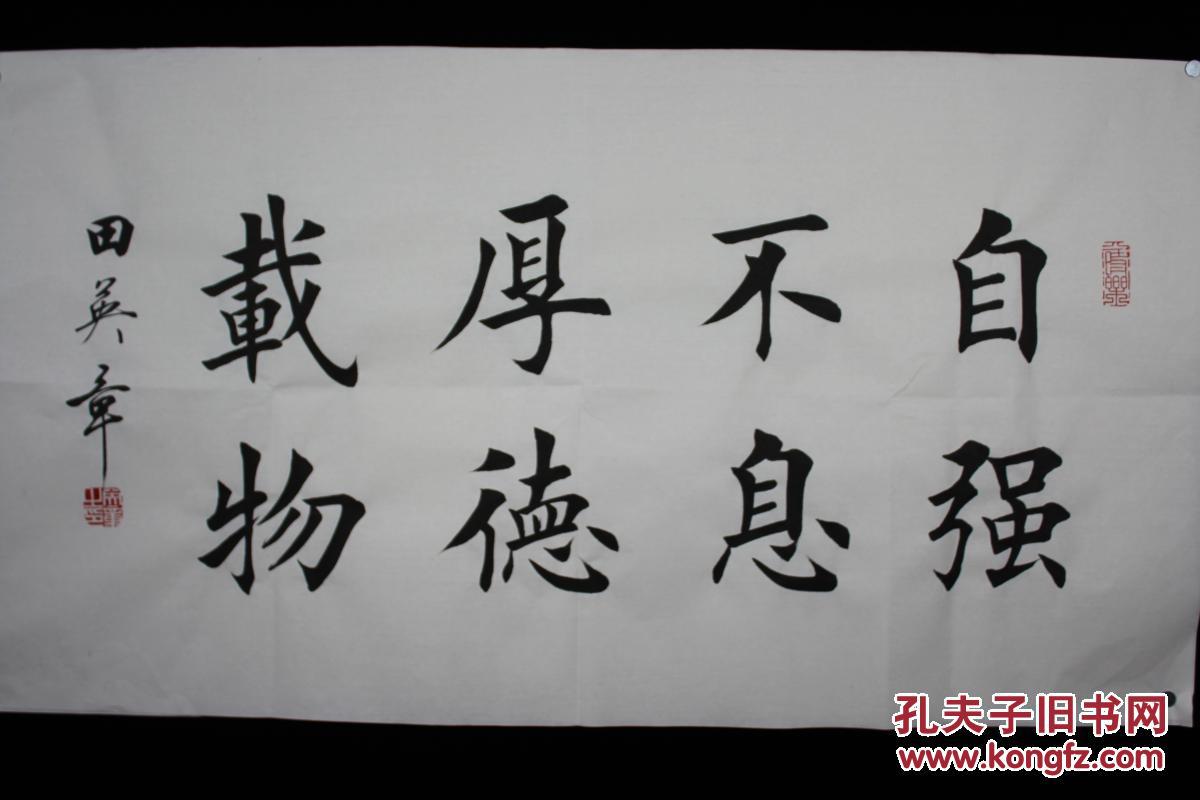 自强
不息
厚德
載物
田英章
孔夫子旧书网
www.kongfz.com